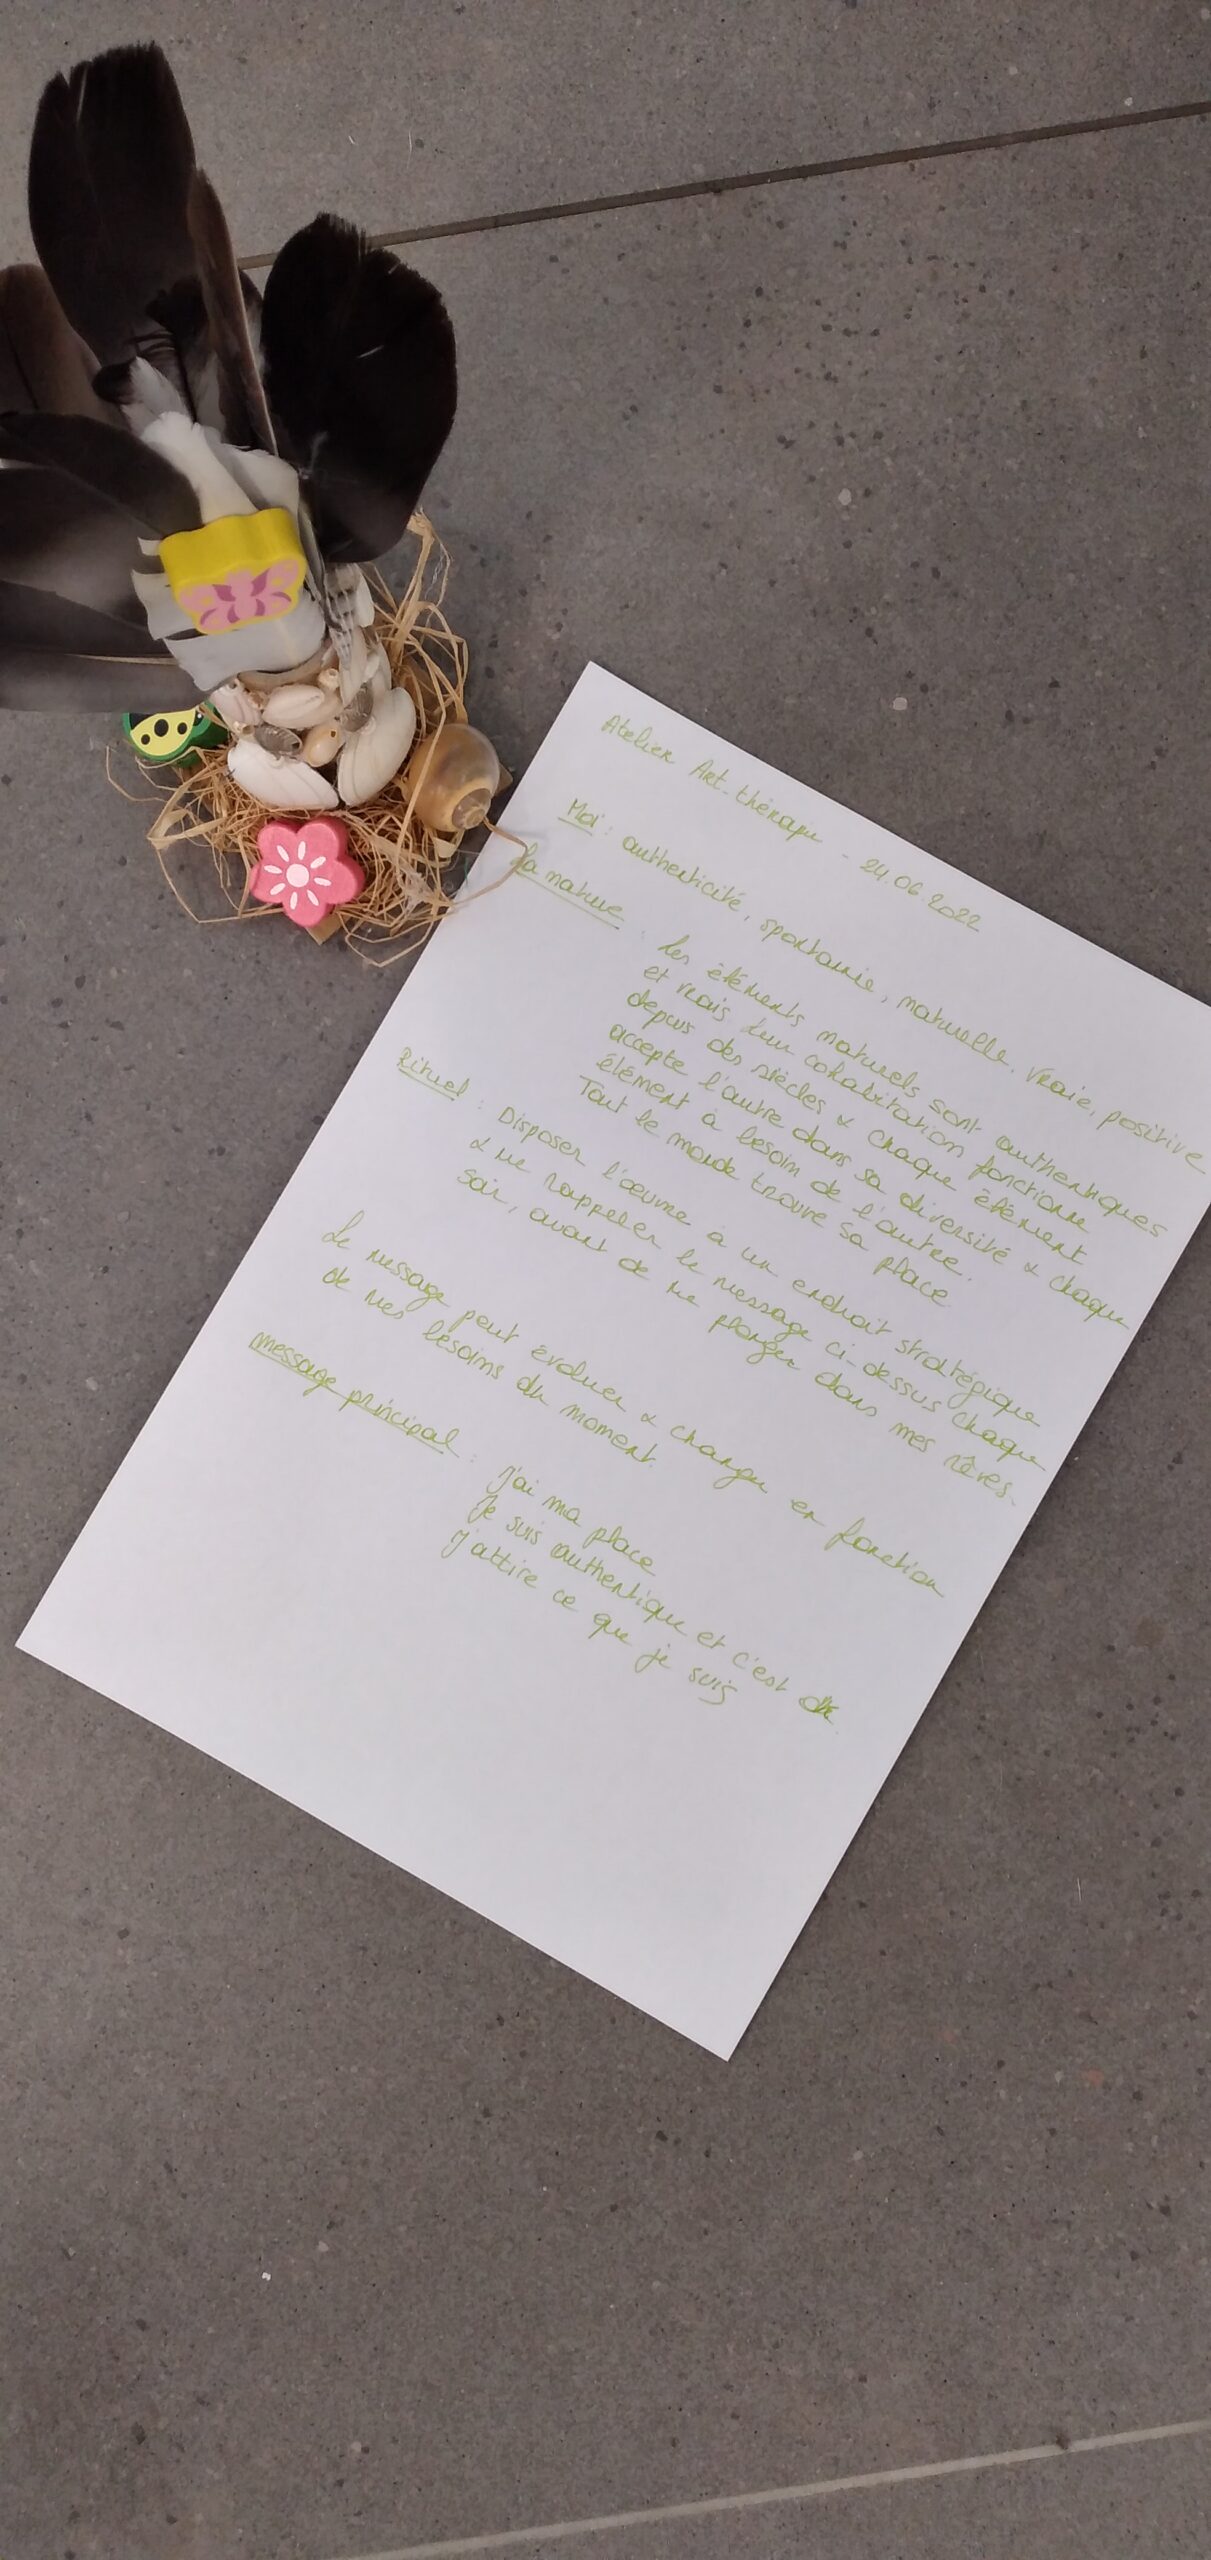 Atelier Art-thérapie - 24.06.2022
Moi : authenticité, spontanie, naturelle, vraie, positive
La nature : les éléments naturels sont authentiques
et vrais leur cohabitation fonctionne
depuis des siècles & chaque élément
accepte l'autre dans sa diversité & chaque
élément à besoin de l'autre.
Tout le monde trouve sa place
Rituel : Disposer l'œuvre à un endroit stratégique
& me rappeler le message ci-dessus chaque
soir, avant de me plonger dans mes rêves.
Le message peut évoluer & changer en fonction
de mes besoins du moment.
message principal : J'ai ma place
Je suis authentique et c'est ok
J'attire ce que je suis